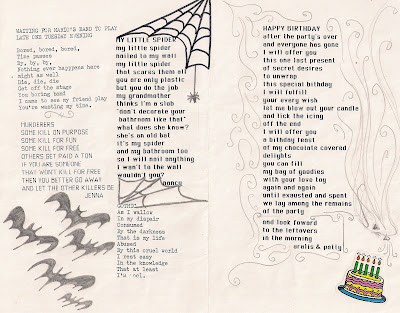 WAITING FOR MARIO'S BAND TO PLAY
LATE ONE TUESDAY EVENING
Bored, bored, bored,
Time passes
By, by, by,
Nothing ever happens here
might as well
Die, die, die
Get off the stage
You boring band
I came to see my friend play
You're wasting my time.
MURDERERS
SOME KILL ON PURPOSE
SOME KILL FOR FUN
SOME KILL FOR FREE
OTHERS GET PAID A TON
IF YOU ARE SOMEONE
THAT WON'T KILL FOR FREE
THEN YOU BETTER GO AWAY
AND LET THE OTHER KILLERS BE
JENNA
MY LITTLE SPIDER
my little spider
nailed to my wall
my little spider
that scares them all
you are only plastic
but you do the job
my grandmother
thinks I'm a slob
"don't decorate your
bathroom like that"
what does she know?
she's an old bat
it's my spider
and my bathroom too
so I will nail anything
I want to the wall
wouldn't you?
nancy
GOTHIC
As I wallow
In my dispair
Consumed
By the darkness
That is my life
Abused
By this cruel world
I rest easy
In the knowledge
That at least
I'm
HAPPY BIRTHDAY
after the party's over
and everyone has gone
I will offer you
this one last present
of secret desires
to unwrap
this special bithday
I will fulfill
your every wish
let me blow out your candle
and lick the icing
off the end
I will offer you
a birthday feast
of my chocolate covered
delights
you can fill
my bag of goodies
with your love toy
again and again
until exhausted and spent
we lay among the remains
of the party
and look foward
to the leftovers
in the morning
arelis & patty